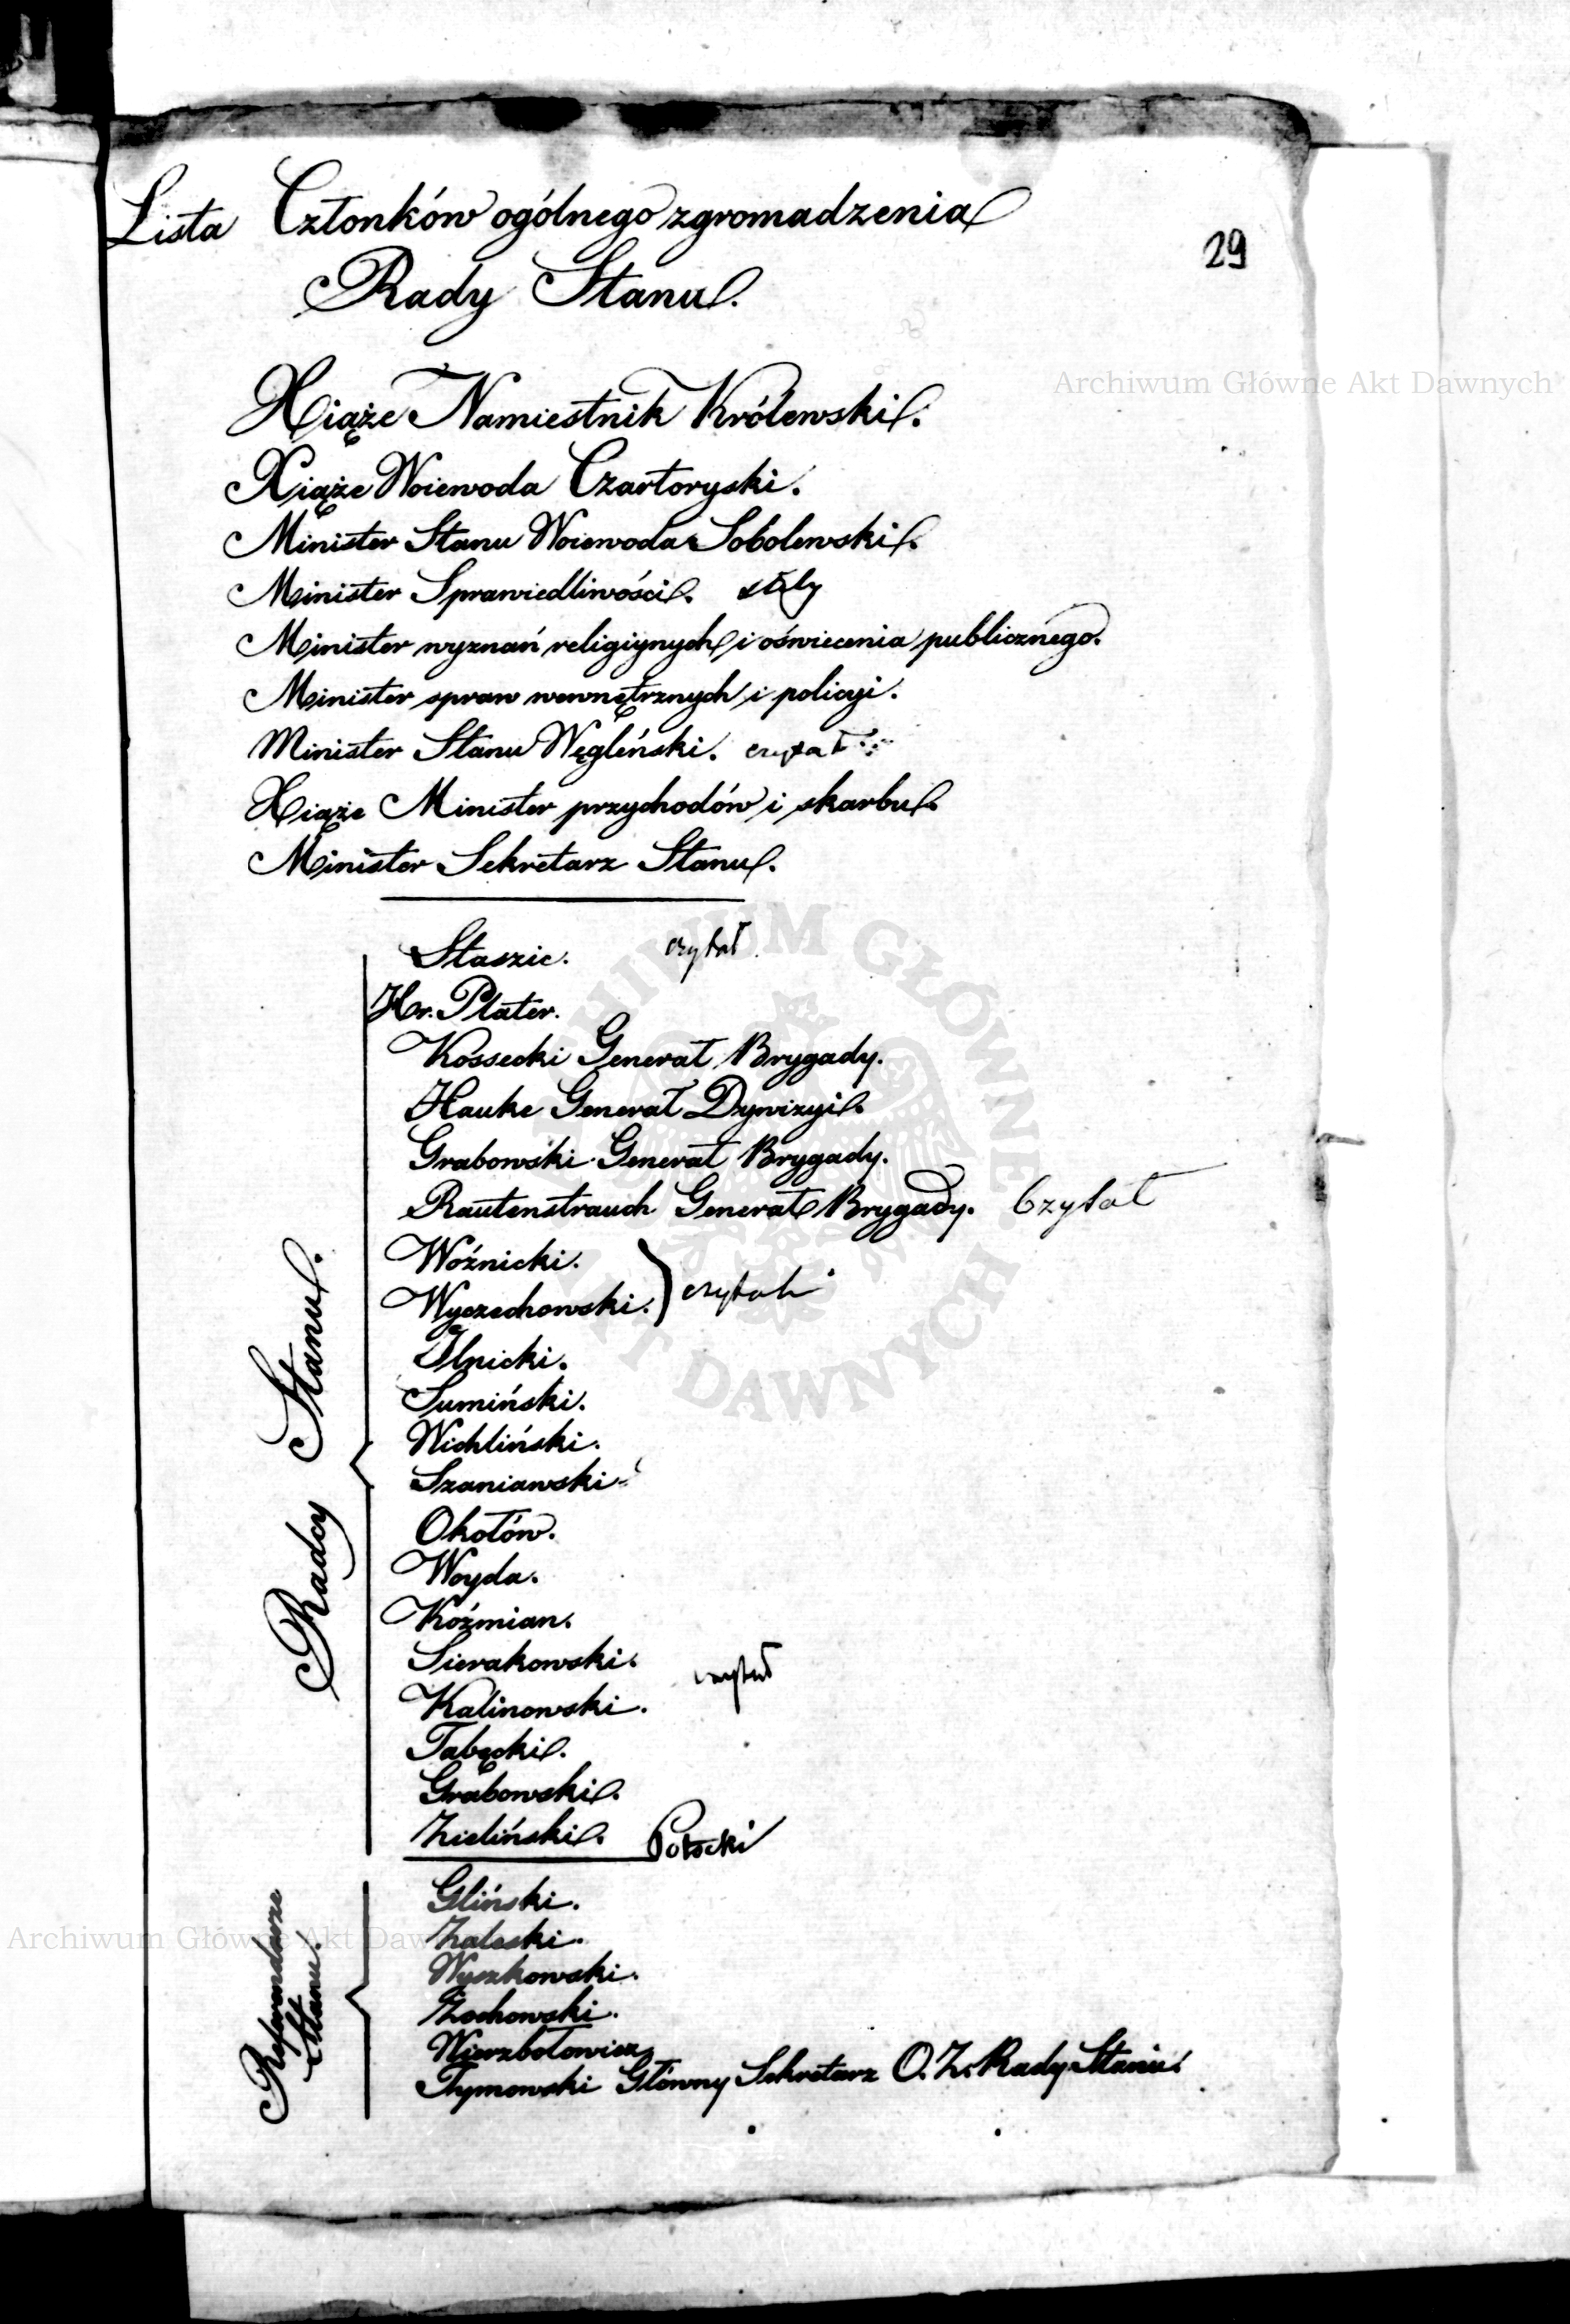 Lista Członków ogólnego zgromadzenia
Rady Stanu.
29
Xiąże Namiestnik Królewski.
Xiąże Woiewoda Czartoryski.
Minister Stanu Woiewoda Sobolewski.
Minister Sprawiedliwości.
Minister wyznań religiynych i oświecenia publicznego.
Minister spraw wewnętrznych i policyi.
Minister Stanu Węgleński. czytał
Xiąże Minister przychodów i skarbu.
Minister Sekretarz Stanu.
Radcy Stanu.
Staszic. czytał
Hr. Plater.
Kossecki Generał Brygady.
Hauke Generał Dywizyi.
Grabowski Generał Brygady.
Rautenstrauch Generał Brygady. Czytał
Woźnicki.
Wyczechowski. czytali
Ilnicki.
Sumiński.
Wichliński.
Szaniawski.
Okołów.
Woyda.
Koźmian.
Sierakowski. czytał
Kalinowski.
Tabęcki.
Grabowski.
Zieliński. Potocki
Referendarze
Stanu.
Gliński.
Zaleski.
Wyszkowski.
Żochowski.
Wierzbołowicz
Tymowski Główny Sekretarz O. Z. Rady Stanu.
Archiwum Główne Akt Dawnych
ARCHIWUM GŁÓWNE AKT DAWNYCH
Archiwum Główne Akt Dawnych